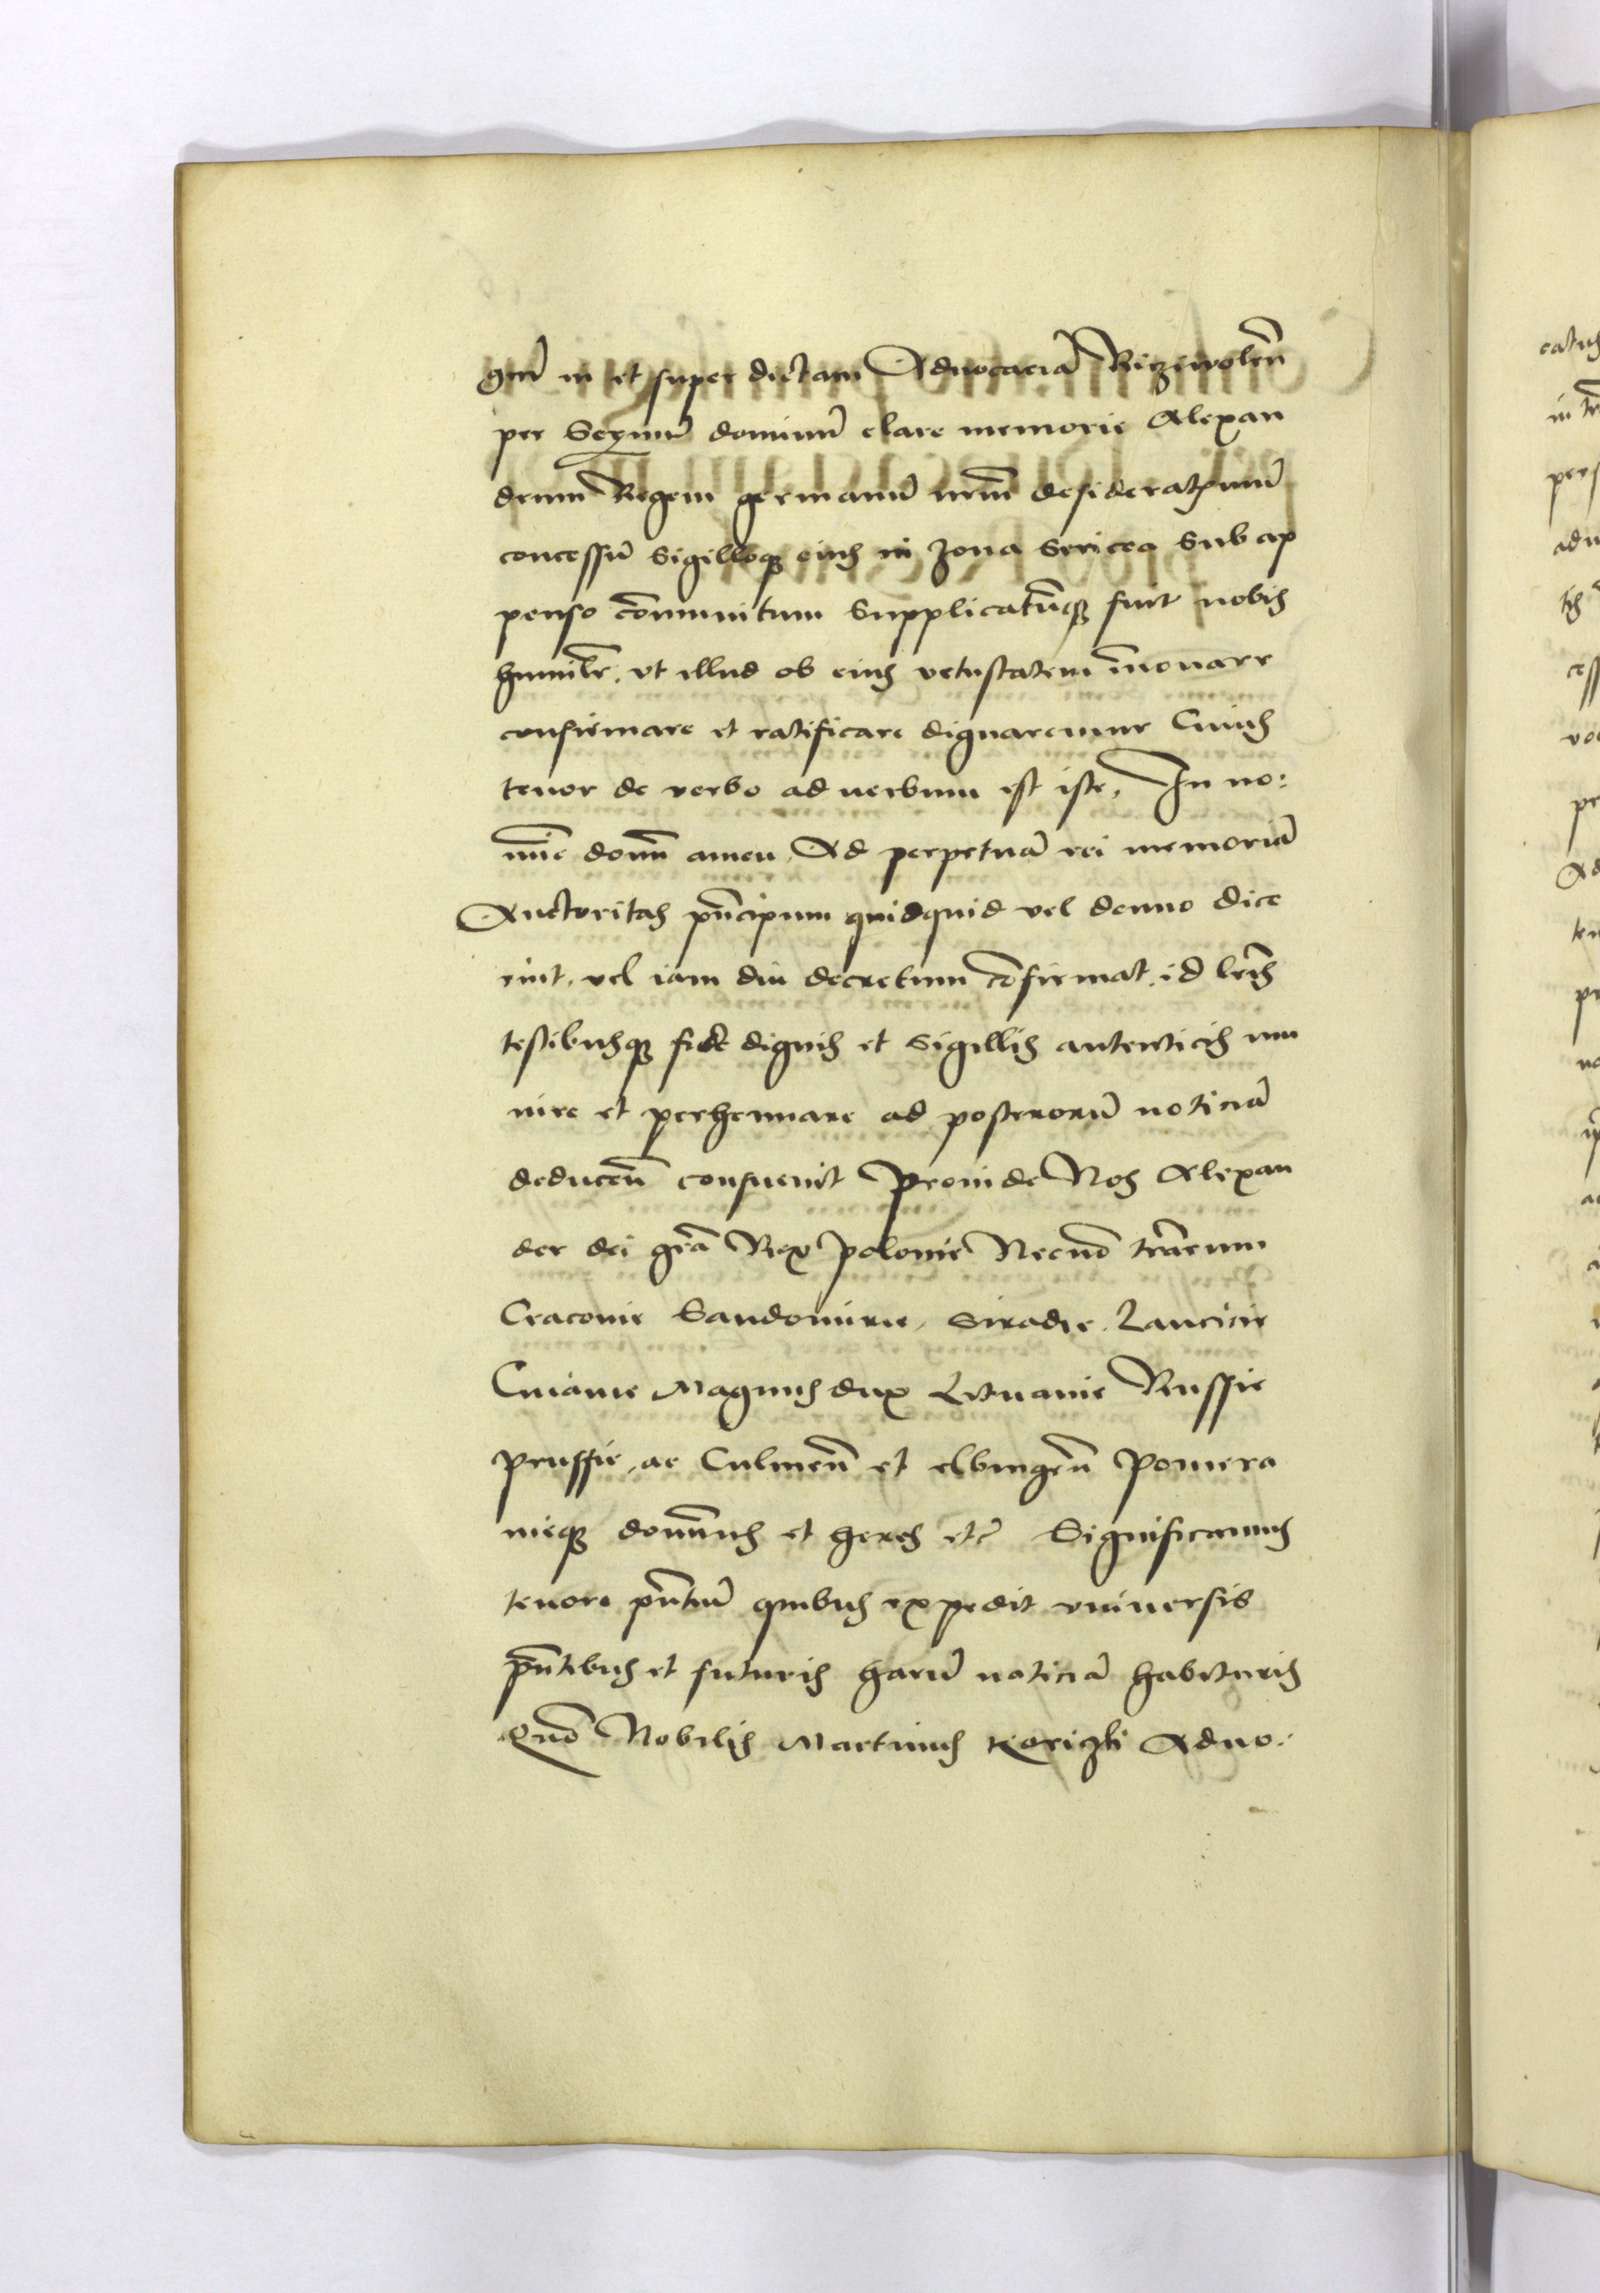 gnū in et super dictam Aduocaciā Riczywolēn
per Serᵐū dominū clare memorie Alexan
drum Regem germanū nrm̄ desideratʳmū
concessū sigilloqꝫ eius in zona sericea sub ap
penso cōmunitum Supplicatūqꝫ fuit nobis
humilr̄, vt illud ob eius vetustatem īnouare
confirmare et ratificare dignaremur Cuius
tenor de verbo ad uerbum est iste, In no:
mīe domī amen, Ad perpetuā rei memoriā
Auctoritas prīcipum quidquid vel denuo dice
rint, vel iam diu decretum cōfirmat, id lrīs
testibusqꝫ fide dignis et sigillis autenticis mu
nire et perhennare ad posterorū noticiā
deducen̄ consueuit Proinde Nos Alexan
der dei grā Rex Polonie Necnō trārum
Cracouie Sandomirie, Siradie, Lancicie
Cuiauie Magnus dux Lituanie Russie
prussie, ac Culmen̄ et elbingen̄ Pomera
nieqꝫ domīnus et heres etc̄ Significamus
tenore pn̄tiū quibus expedit vniuersis
pn̄tibus et futuris harū noticiā habituris
Quō Nobilis Martinus Aduo: